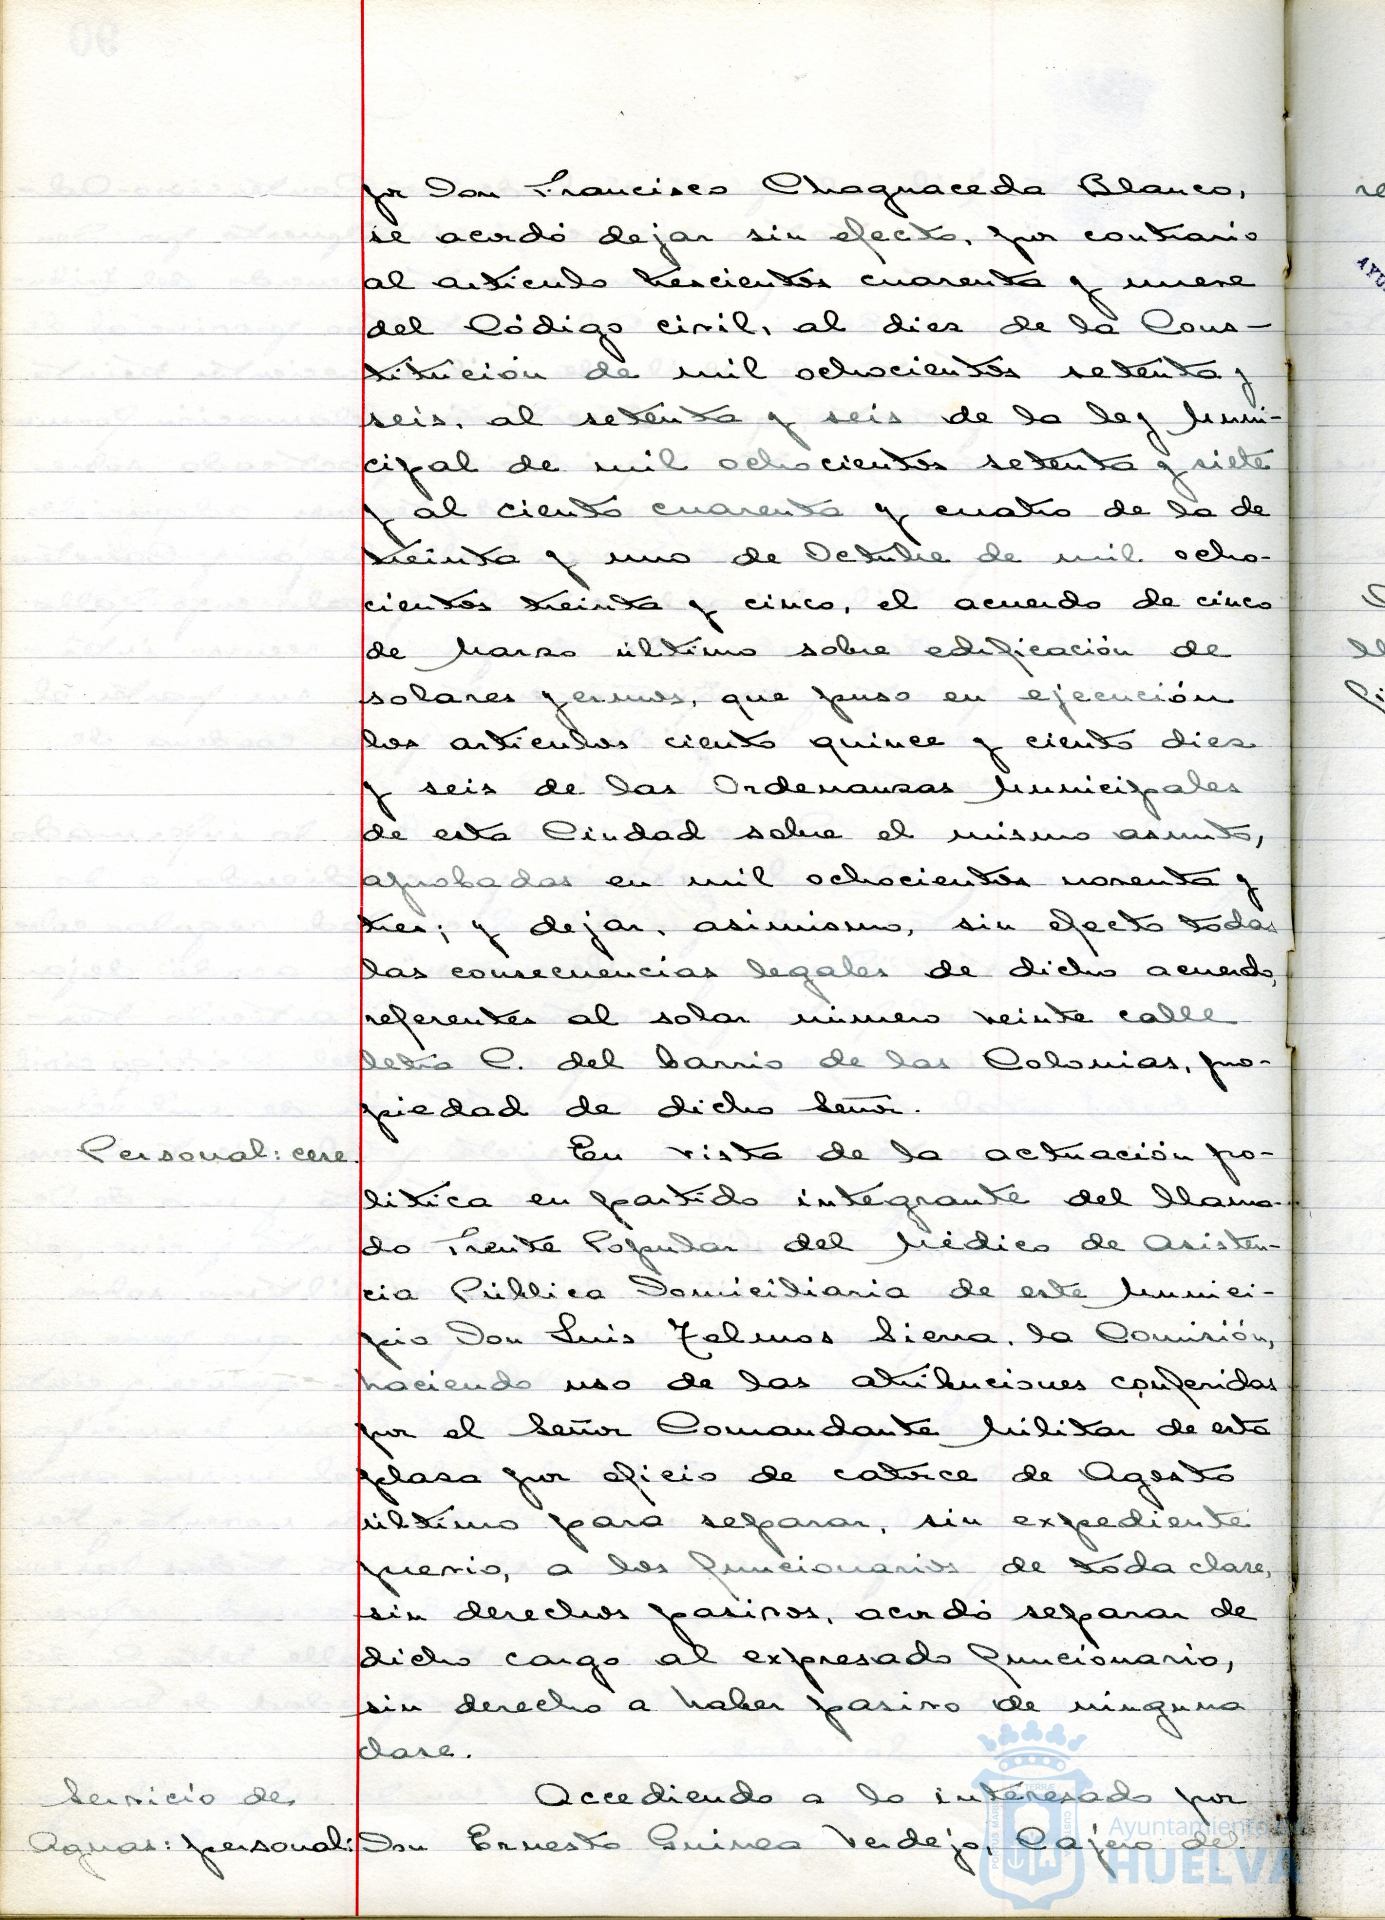 por Don Francisco Chaguaceda Blanco,
se acordó dejar sin efecto, por contrario
al artículo trescientos cuarenta y nueve
del Código civil, al diez de la Cons-
titución de mil ochocientos setenta y
seis, al setenta y seis de la ley Muni-
cipal de mil ochocientos setenta y siete
y al ciento cuarenta y cuatro de la de
treinta y uno de Octubre de mil ocho-
cientos treinta y cinco, el acuerdo de cinco
de Marzo último sobre edificación de
solares yermos, que puso en ejecución
los artículos ciento quince y ciento diez
y seis de las Ordenanzas Municipales
de esta Ciudad sobre el mismo asunto,
aprobadas en mil ochocientos noventa y
tres; y dejar, asimismo, sin efecto todas
las consecuencias legales de dicho acuerdo,
referentes al solar número veinte calle
letra C. del barrio de las Colonias, pro-
piedad de dicho Señor.
Personal: cese.
En vista de la actuación po-
lítica en partido integrante del llama-
do Frente Popular del Médico de Asisten-
cia Pública Domiciliaria de este Munici-
pio Don Luis Tolmos Sierra, la Comisión,
haciendo uso de las atribuciones conferidas
por el Señor Comandante Militar de esta
plaza por oficio de catorce de Agosto
último para separar, sin expediente
previo, a los funcionarios de toda clase,
sin derechos pasivos, acordó separar de
dicho cargo al expresado funcionario,
sin derecho a haber pasivo de ninguna
clase.
Servicio de
Aguas: personal:
Accediendo a lo interesado por
Don Ernesto Guinea Verdejo, Cajero del
Ayuntamiento de
HUELVA